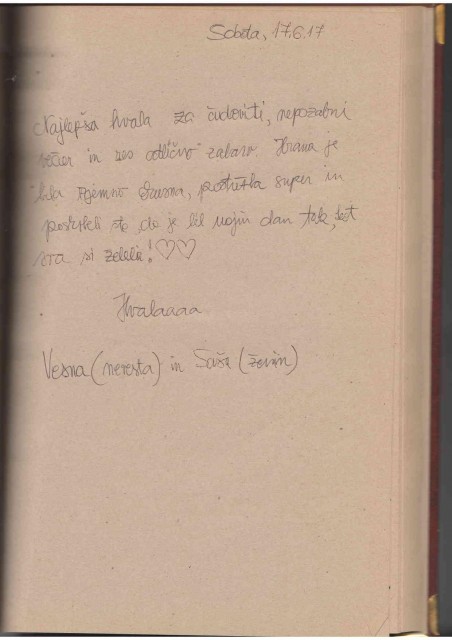 Sobota, 17.6.17
Najlepša hvala za čudoviti, nepozabni
večer in res odlično zabavo. Hrana je
bila izjemno okusna, postrežba super in
poskrbeli ste, da je bil najin dan tak, kot
sva si želela! ♡♡
Hvalaaaa
Vesna (nevesta) in Saša (ženin)